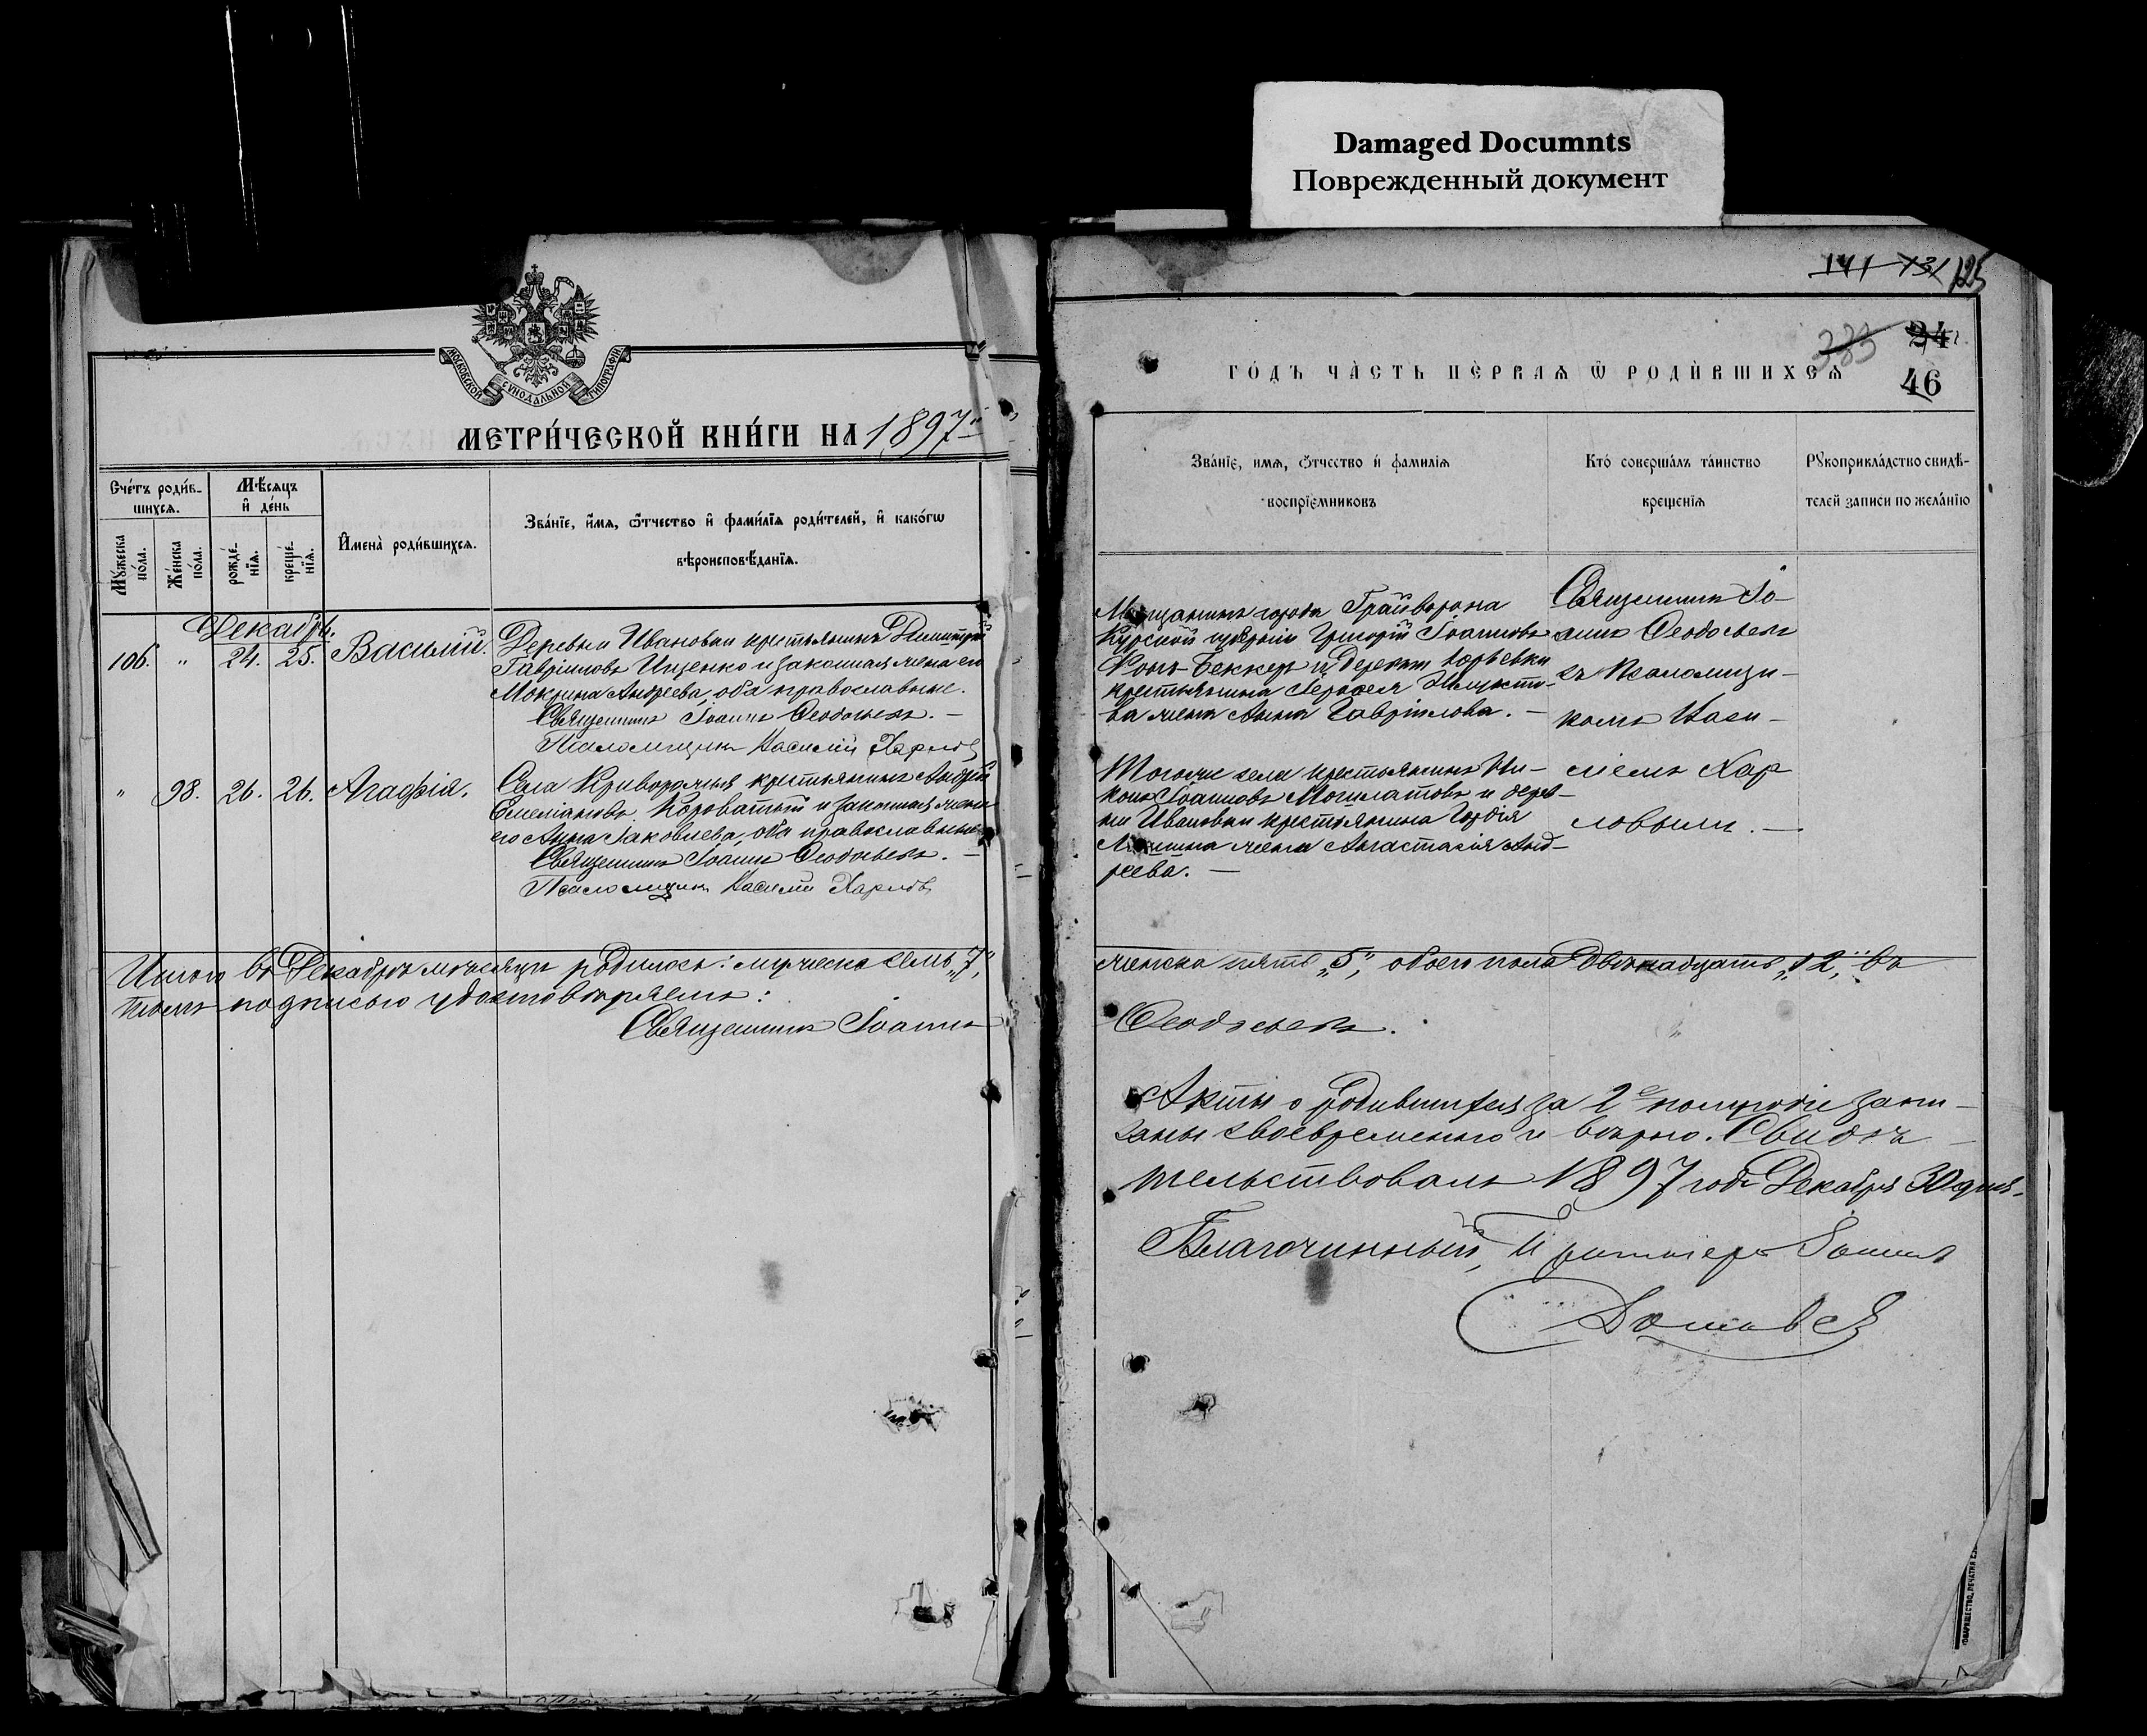 Damaged Documnts
Поврежденный документ
МОСКОВСКОЙ СУНОДАЛЬНОЙ ТИПОГРАФІИ
МЕТРИ́ЧЕСКОЙ КНИ́ГИ НА 1897
Сче́тъ роди́вшихсѧ.
Мѣ́сѧцъ и҆ де́нь
Мꙋ́жеска по́ла.
Же́нска по́ла.
рожде́нїѧ.
креще́нїѧ.
И҆мена̀ роди́вшихсѧ.
Зва́нїе, и҆́мѧ, ѻ҆́тчество и҆ фами́лїѧ роди́телей, и҆ како́гѡ
вѣроисповѣ́данїѧ.
Декабрь.
106. " 24. 25. Василій.
Деревни Ивановки крестьянинъ Димитрій
Гавріиловъ Ищенко и законная жена его
Мокрина Андреева, оба православные.
Священникъ Іоаннъ Ѳеодосьевъ. —
Псаломщикъ Василій Харловъ
" 98. 26. 26. Агафія.
Села Криворожья крестьянинъ Андрей
Емеліановъ Короватый и законная жена
его Анна Іаковлева, оба православные
Священникъ Іоаннъ Ѳеодосьевъ. —
Псаломщикъ Василій Харловъ
Итого въ Декабрѣ мѣсяцѣ родилось: мужеска семь „7",
томъ подписью удостовѣряемъ:
Священникъ Іоаннъ
141 131 125
383 34
46
ГО́ДЪ ЧА́СТЬ ПЕ́РВАѦ Ѡ҆ РОДИ́ВШИХСѦ
Зва́нїе, имѧ, ѻ҆́тчество и҆ фамилїѧ
воспрїе́мниковъ
Кто̀ соверша́лъ та́инство
крещенїѧ
Рꙋкоприкла́дство свидѣ́-
телей записи по жела́нїю
Мѣщанинъ города Грайворона
Курской губерніи Григорій Іоанновъ
Фонъ-Беккеръ и деревни Юрьевки
жена Анна Гавріилова. —
Священникъ Іо-
аннъ Ѳеодосьевъ
съ Псаломщи-
комъ Васи-
ліемъ Хар
ловымъ. —
Тогоже села крестьянинъ Ни-
конъ Іоанновъ и дерев-
ни Ивановки крестьянина Гордія
жена Анастасія Анд-
реева. —
женска пять „5", обоего пола двѣнадцать „12", въ
Ѳеодосьевъ.
Акты о родившихся за 2е полугодіе запи-
саны своевременно и вѣрно. Свидѣ-
тельствовалъ 1897 года Декабря 30 дня.
Благочинный, Протоіерей Іоаннъ